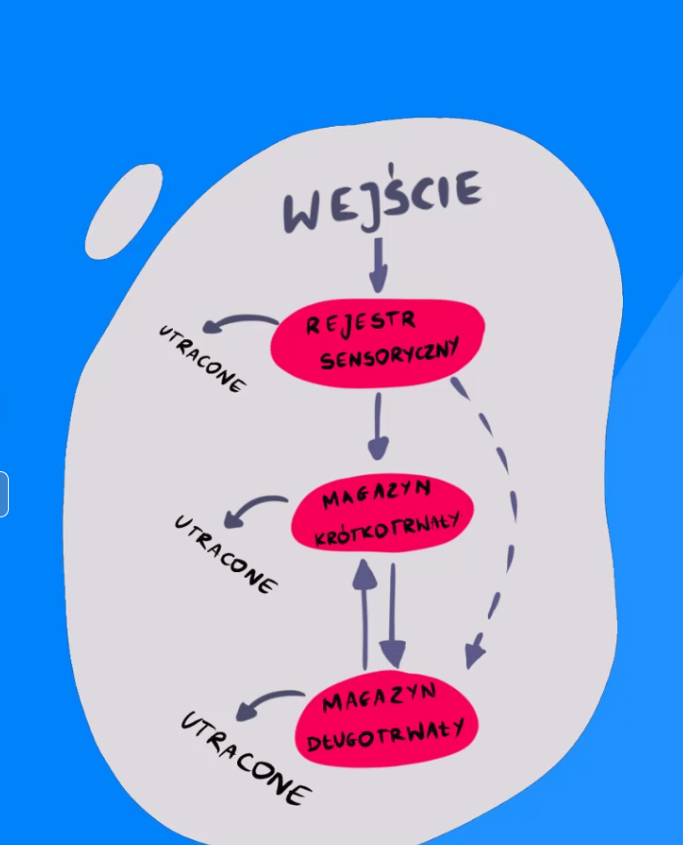 WEJŚCIE
REJESTR
SENSORYCZNY
UTRACONE
MAGAZYN
KRÓTKOTRWAŁY
UTRACONE
MAGAZYN
DŁUGOTRWAŁY
UTRACONE